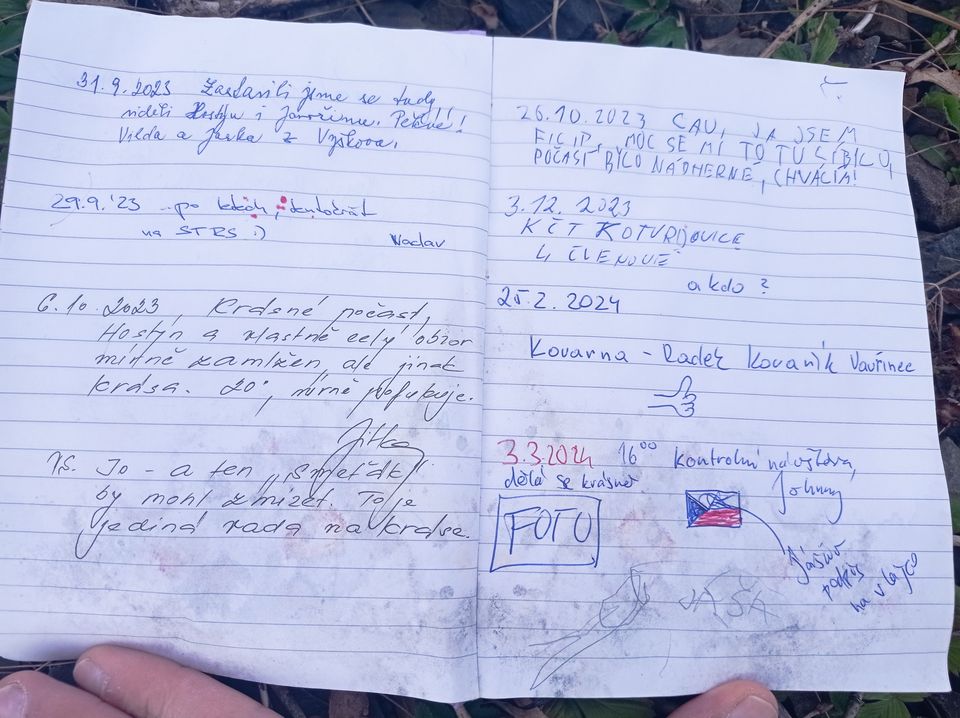 31.9.2023 Zastavili jsme se tudy,
viděli Hostýn i Javořinu. Pěkné!
Vilda a Jarka z Vyškova.
29.9.'23 ..po letech,
na STRS :)
Vaclav
6.10.2023, Krásné počasí,
Hostýn a vlastně celý obzor
mírně zamlžen, ale jinak
krása. 20°, mírně pofukuje.
Jitka
P.S. Jo - a ten "smeťák"
by mohl zmizet. To je
jediná vada na kráse.
26.10.2023 ČAU, JA JSEM
FILIP, MOC SE MI TO TU LÍBILO,
POČASÍ BYLO NÁDHERNÉ, CHVÁLÍM!
3.12.2023
KČT KOTVRDOVICE
4 ČLENOVÉ
a kdo?
25.2.2024
Kovarna - Radek Kovaník Vavřinec
3.3.2024 16⁰⁰ kontrolní návštěva,
dělá se krásně Johnny
FOTO
Jášův
podpis
na vlajce
JÁŠA